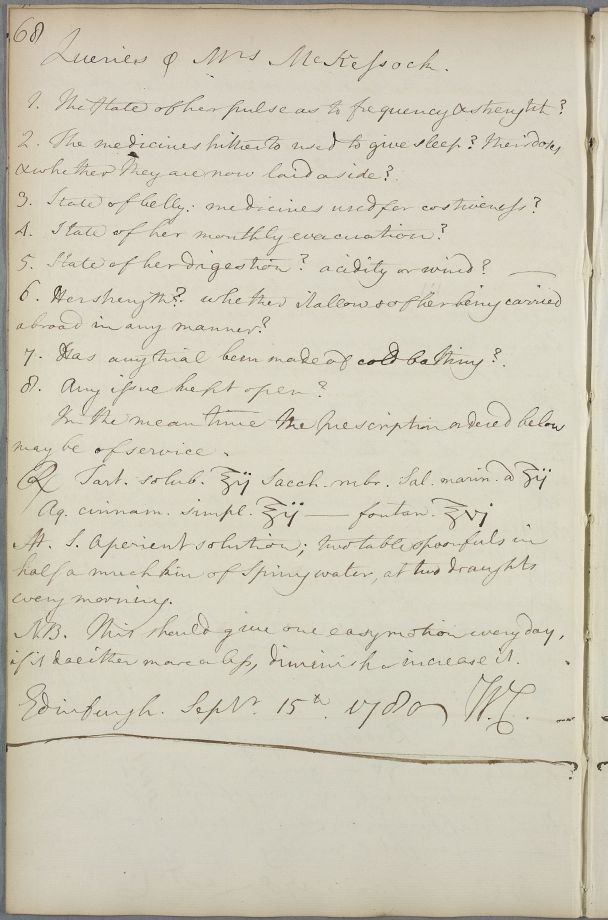 68
Queries ꝙ Mrs McKessock.
1. The State of her pulse as to frequency & strenght?
2. The medicines hitherto used to give sleep? their doses,
& whether they are now laid aside?
3. State of belly: medicines used for costiveness?
4. State of her monthly evacuation?
5. State of her digestion? acidity or wind? —
6. Her strength? whether it allows of her being carried
abroad in any manner?
7. Has any trial been made of cold bathing?
8. Any issue kept open?
In the mean time the prescription ordered below
may be of service.
℞ Tart. solub. ℥ij Sacch. rubr. Sal. marin. a ℥ij
Aq. cinnam. simpl. ℥ij — fontan. ℥vj
M. S. aperient solution; two table spoonfuls in
half a mutchkin of Spring water, at two draughts
every morning.
NB. This should give one easy motion every day,
if it do either more or less, diminish or increase it.
Edinburgh. Sepbr. 15th. 1780 W.C.